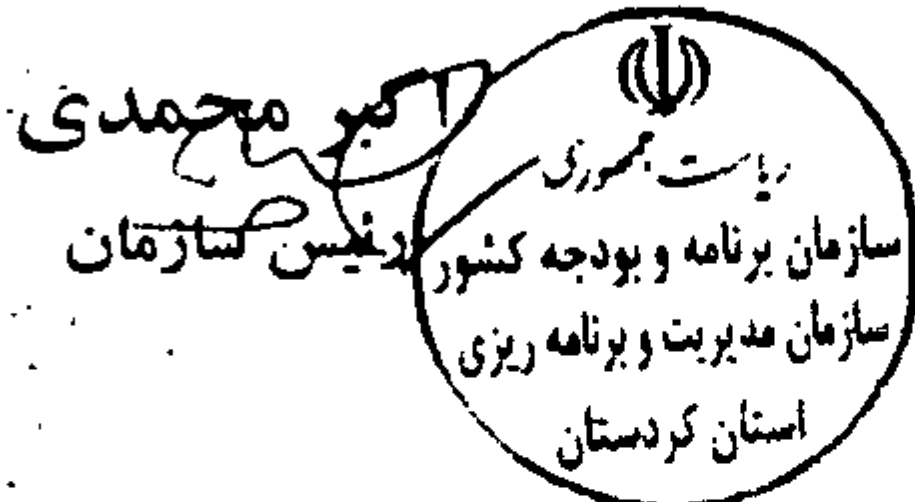 اکبر محمدی
رئیس سازمان
ریاست جمهوری
سازمان برنامه و بودجه کشور
سازمان مدیریت و برنامه ریزی
استان کردستان